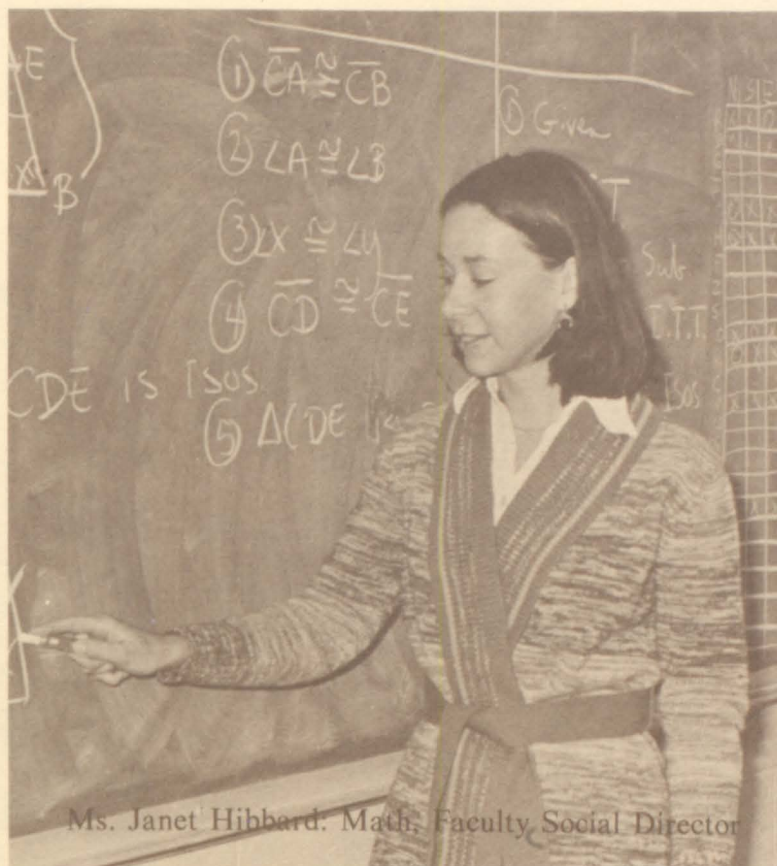 E
X B
① C̅A̅ ≅ C̅B̅
② ∠A ≅ ∠B
③ ∠X ≅ ∠y
④ C̅D̅ ≅ C̅E̅
CDE is Isos
⑤ Δ CDE
① Given
T
Sub
I.T.T.
Isos
Ms. Janet Hibbard: Math, Faculty Social Director